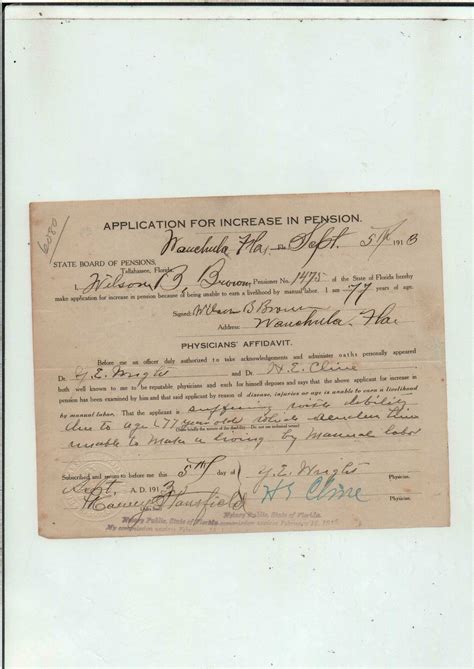 6080
APPLICATION FOR INCREASE IN PENSION.
Wauchula, Fla., Fla. Sept. 5th 1913
STATE BOARD OF PENSIONS,
Tallahassee, Florida.
Wilson B. Brown Pensioner No. 1475 of the State of Florida hereby
make application for increase in pension because of being unable to earn a livelihood by manual labor. I am 77 years of age.
Signed: Wilson B Brown
Address: Wauchula, Fla
PHYSICIANS' AFFIDAVIT.
Before me an officer duly authorized to take acknowledgements and administer oaths personally appeared
Dr. Y. E. Wright Dr. H. E. Cline
both well known to me to be reputable physicians and each for himself deposes and says that the above applicant for increase in
pension has been examined by him and that said applicant by reason of disease, injuries or age is unable to earn a livelihood
by manual labor. That the applicant is suffering with debility
due to age (77 years old) which renders him
unable to make a living by manual labor
Subscribed and sworn to before me this 5th day of Y. E. Wright
Physician.
Sept. A. D. 1913 H E Cline
Physician.
Mansfield
Notary Public, State of Florida.
Notary Public, State of Florida.
My commission expires